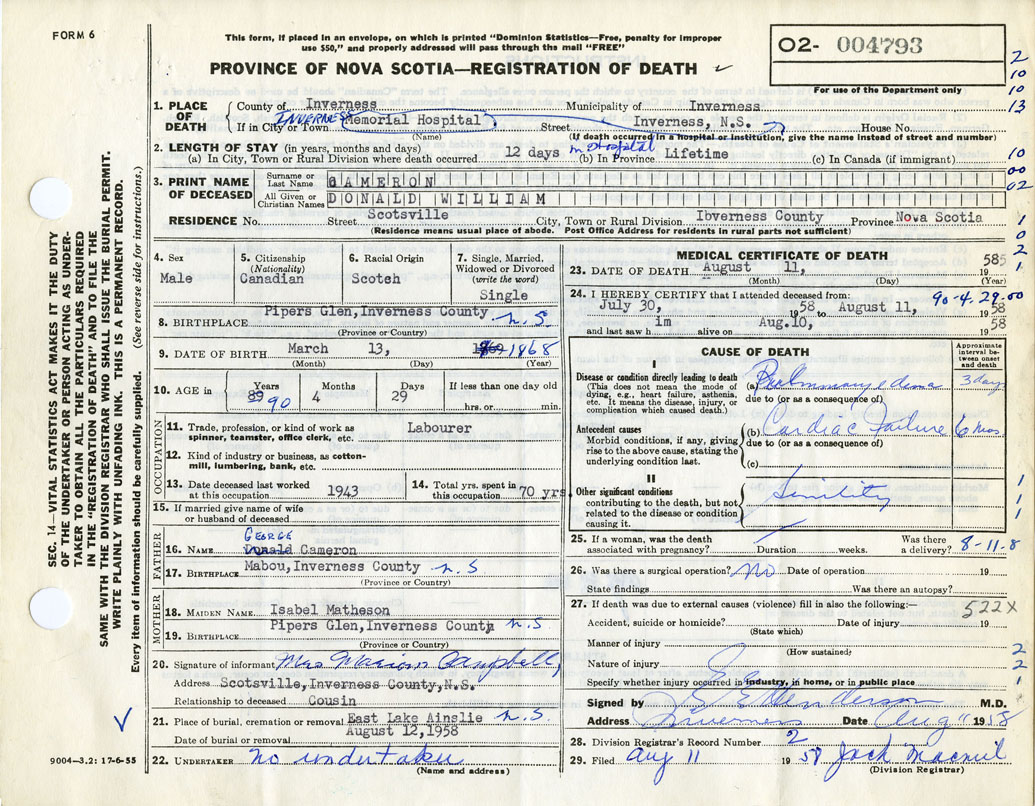 FORM 6
This form, if placed in an envelope, on which is printed "Dominion Statistics—Free, penalty for improper
use $50," and properly addressed will pass through the mail "FREE"
PROVINCE OF NOVA SCOTIA—REGISTRATION OF DEATH
02- 004793
For use of the Department only
2
10
10
13
10
00
02
1
0
2
1
SEC. 14—VITAL STATISTICS ACT MAKES IT THE DUTY
OF THE UNDERTAKER OR PERSON ACTING AS UNDER-
TAKER TO OBTAIN ALL THE PARTICULARS REQUIRED
IN THE "REGISTRATION OF DEATH" AND TO FILE THE
SAME WITH THE DIVISION REGISTRAR WHO SHALL ISSUE THE BURIAL PERMIT.
WRITE PLAINLY WITH UNFADING INK. THIS IS A PERMANENT RECORD.
Every item of information should be carefully supplied. (See reverse side for instructions.)
1. PLACE OF DEATH
County of Inverness Municipality of Inverness
If in City or Town INVERNESS Memorial Hospital Street Inverness, N.S. House No.
(Name) (If death occurred in a hospital or institution, give the name instead of street and number)
2. LENGTH OF STAY (in years, months and days) in Hospital
(a) In City, Town or Rural Division where death occurred 12 days (b) In Province Lifetime (c) In Canada (if immigrant)
3. PRINT NAME OF DECEASED
Surname or Last Name CAMERON
All Given or Christian Names DONALD WILLIAM
RESIDENCE No. Street Scotsville City, Town or Rural Division Ibverness County Province Nova Scotia
(Residence means usual place of abode. Post Office Address for residents in rural parts not sufficient)
4. Sex
Male
5. Citizenship
(Nationality)
Canadian
6. Racial Origin
Scotch
7. Single, Married,
Widowed or Divorced
(write the word)
Single
8. BIRTHPLACE Pipers Glen, Inverness County N.S.
(Province or Country)
9. DATE OF BIRTH March 13, 1869 1868
(Month) (Day) (Year)
10. AGE in
Years Months Days If less than one day old
89 90 4 29 hrs. or min.
OCCUPATION
11. Trade, profession, or kind of work as
spinner, teamster, office clerk, etc. Labourer
12. Kind of industry or business, as cotton-
mill, lumbering, bank, etc.
13. Date deceased last worked
at this occupation 1943
14. Total yrs. spent in
this occupation 70 yrs
15. If married give name of wife
or husband of deceased
FATHER
GEORGE
16. NAME Donald Cameron
17. BIRTHPLACE Mabou, Inverness County N.S
(Province or Country)
MOTHER
18. MAIDEN NAME Isabel Matheson
19. BIRTHPLACE Pipers Glen, Inverness County N.S
(Province or Country)
20. Signature of informant Mrs Marion Campbell,
Address Scotsville, Inverness County, N.S.
Relationship to deceased Cousin
21. Place of burial, cremation or removal East Lake Ainslie N.S.
Date of burial or removal August 12, 1958
22. UNDERTAKER No undertaker
(Name and address)
9004—3.2: 17-6-55
MEDICAL CERTIFICATE OF DEATH
23. DATE OF DEATH August 11, 19 58
(Month) (Day) (Year)
24. I HEREBY CERTIFY that I attended deceased from: 90-4-29-00
July 30, 19 58 to August 11, 19 58
and last saw h im alive on Aug. 10, 19 58
CAUSE OF DEATH
Approximate
interval be-
tween onset
and death
I
Disease or condition directly leading to death
(This does not mean the mode of
dying, e.g., heart failure, asthenia,
etc. It means the disease, injury, or
complication which caused death.)
(a) Pulmonary edema 3 days
due to (or as a consequence of)
Antecedent causes
Morbid conditions, if any, giving
rise to the above cause, stating the
underlying condition last.
(b) Cardiac Failure 6 mos
due to (or as a consequence of)
(c)
II
Other significant conditions
contributing to the death, but not
related to the disease or condition
causing it.
Sinility
1
1
1
25. If a woman, was the death
associated with pregnancy? Duration weeks. Was there
a delivery? 8-11-8
26. Was there a surgical operation? no Date of operation 19
State findings Was there an autopsy?
27. If death was due to external causes (violence) fill in also the following:— 522X
Accident, suicide or homicide? Date of injury 19
(State which)
Manner of injury
(How sustained)
Nature of injury
Specify whether injury occurred in industry, in home, or in public place
2
2
1
Signed by Henderson M.D.
Address Inverness Date Aug 11 1958
28. Division Registrar's Record Number 2
29. Filed Aug 11 19 58 Jack Macneil
(Division Registrar)